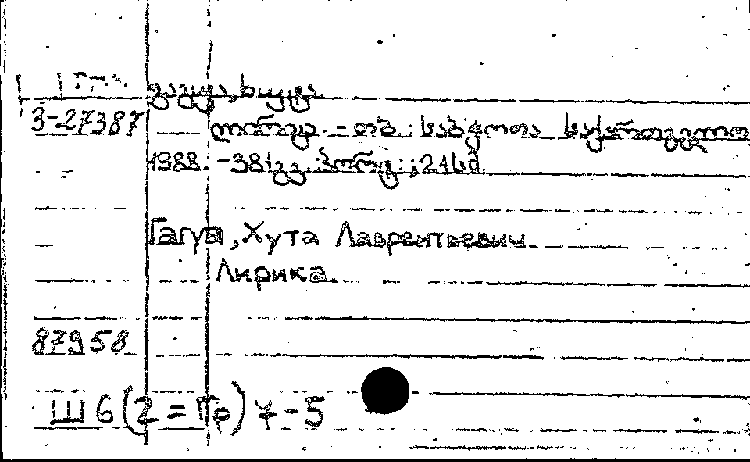 გაგუა, ხუტა
3-27387
ლირიკა. - თბ. : საბჭოთა საქართველო
1988. - 381გვ. : პორტ. ; 21სმ
Гагуа, Хута Лаврентьевич.
Лирика.
87958
Ш6(2=Гр)7-5